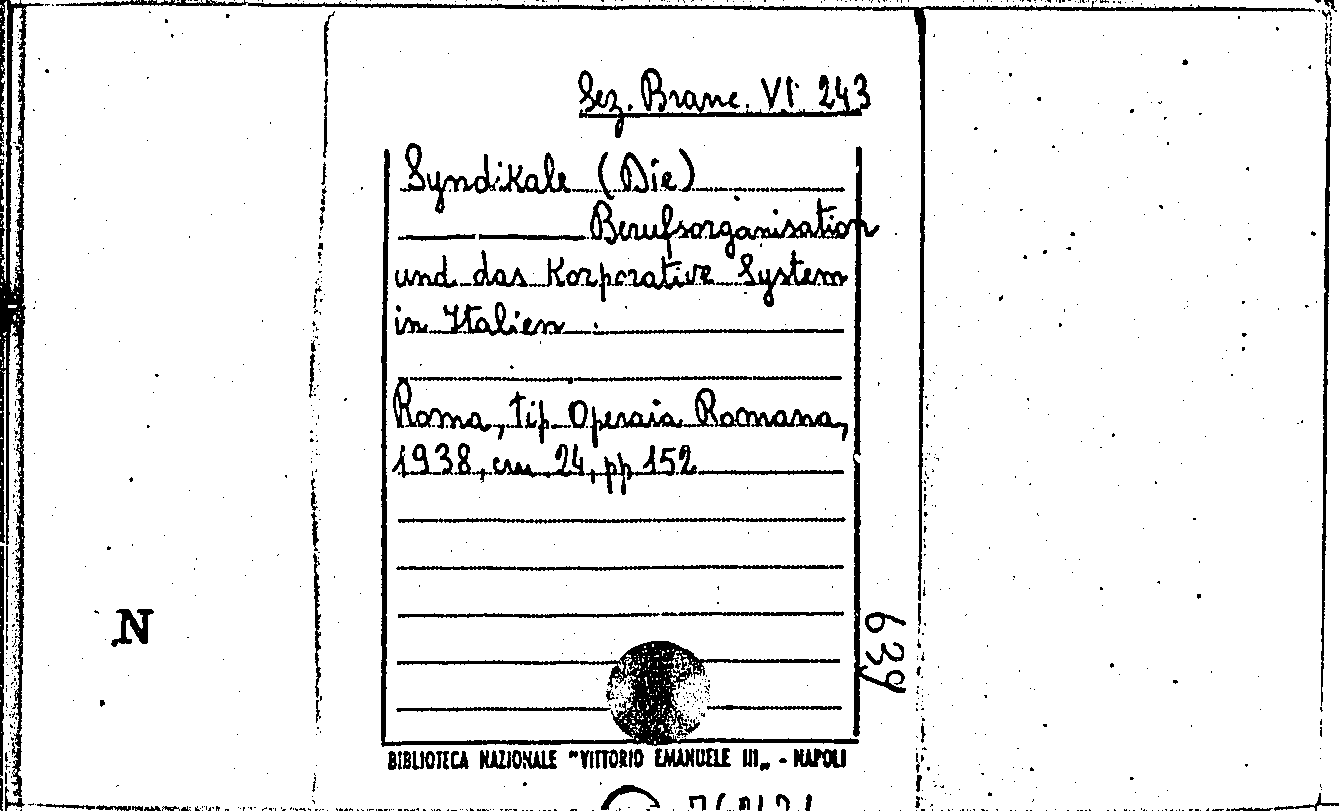 Sez. Branc. VI 243
Syndikale (Die)
Berufsorganisation
und das Korporative System
in Italien.
Roma, tip. Operaia Romana,
1938, cm. 24, pp 152
N
639
BIBLIOTECA NAZIONALE "VITTORIO EMANUELE III„ - NAPOLI